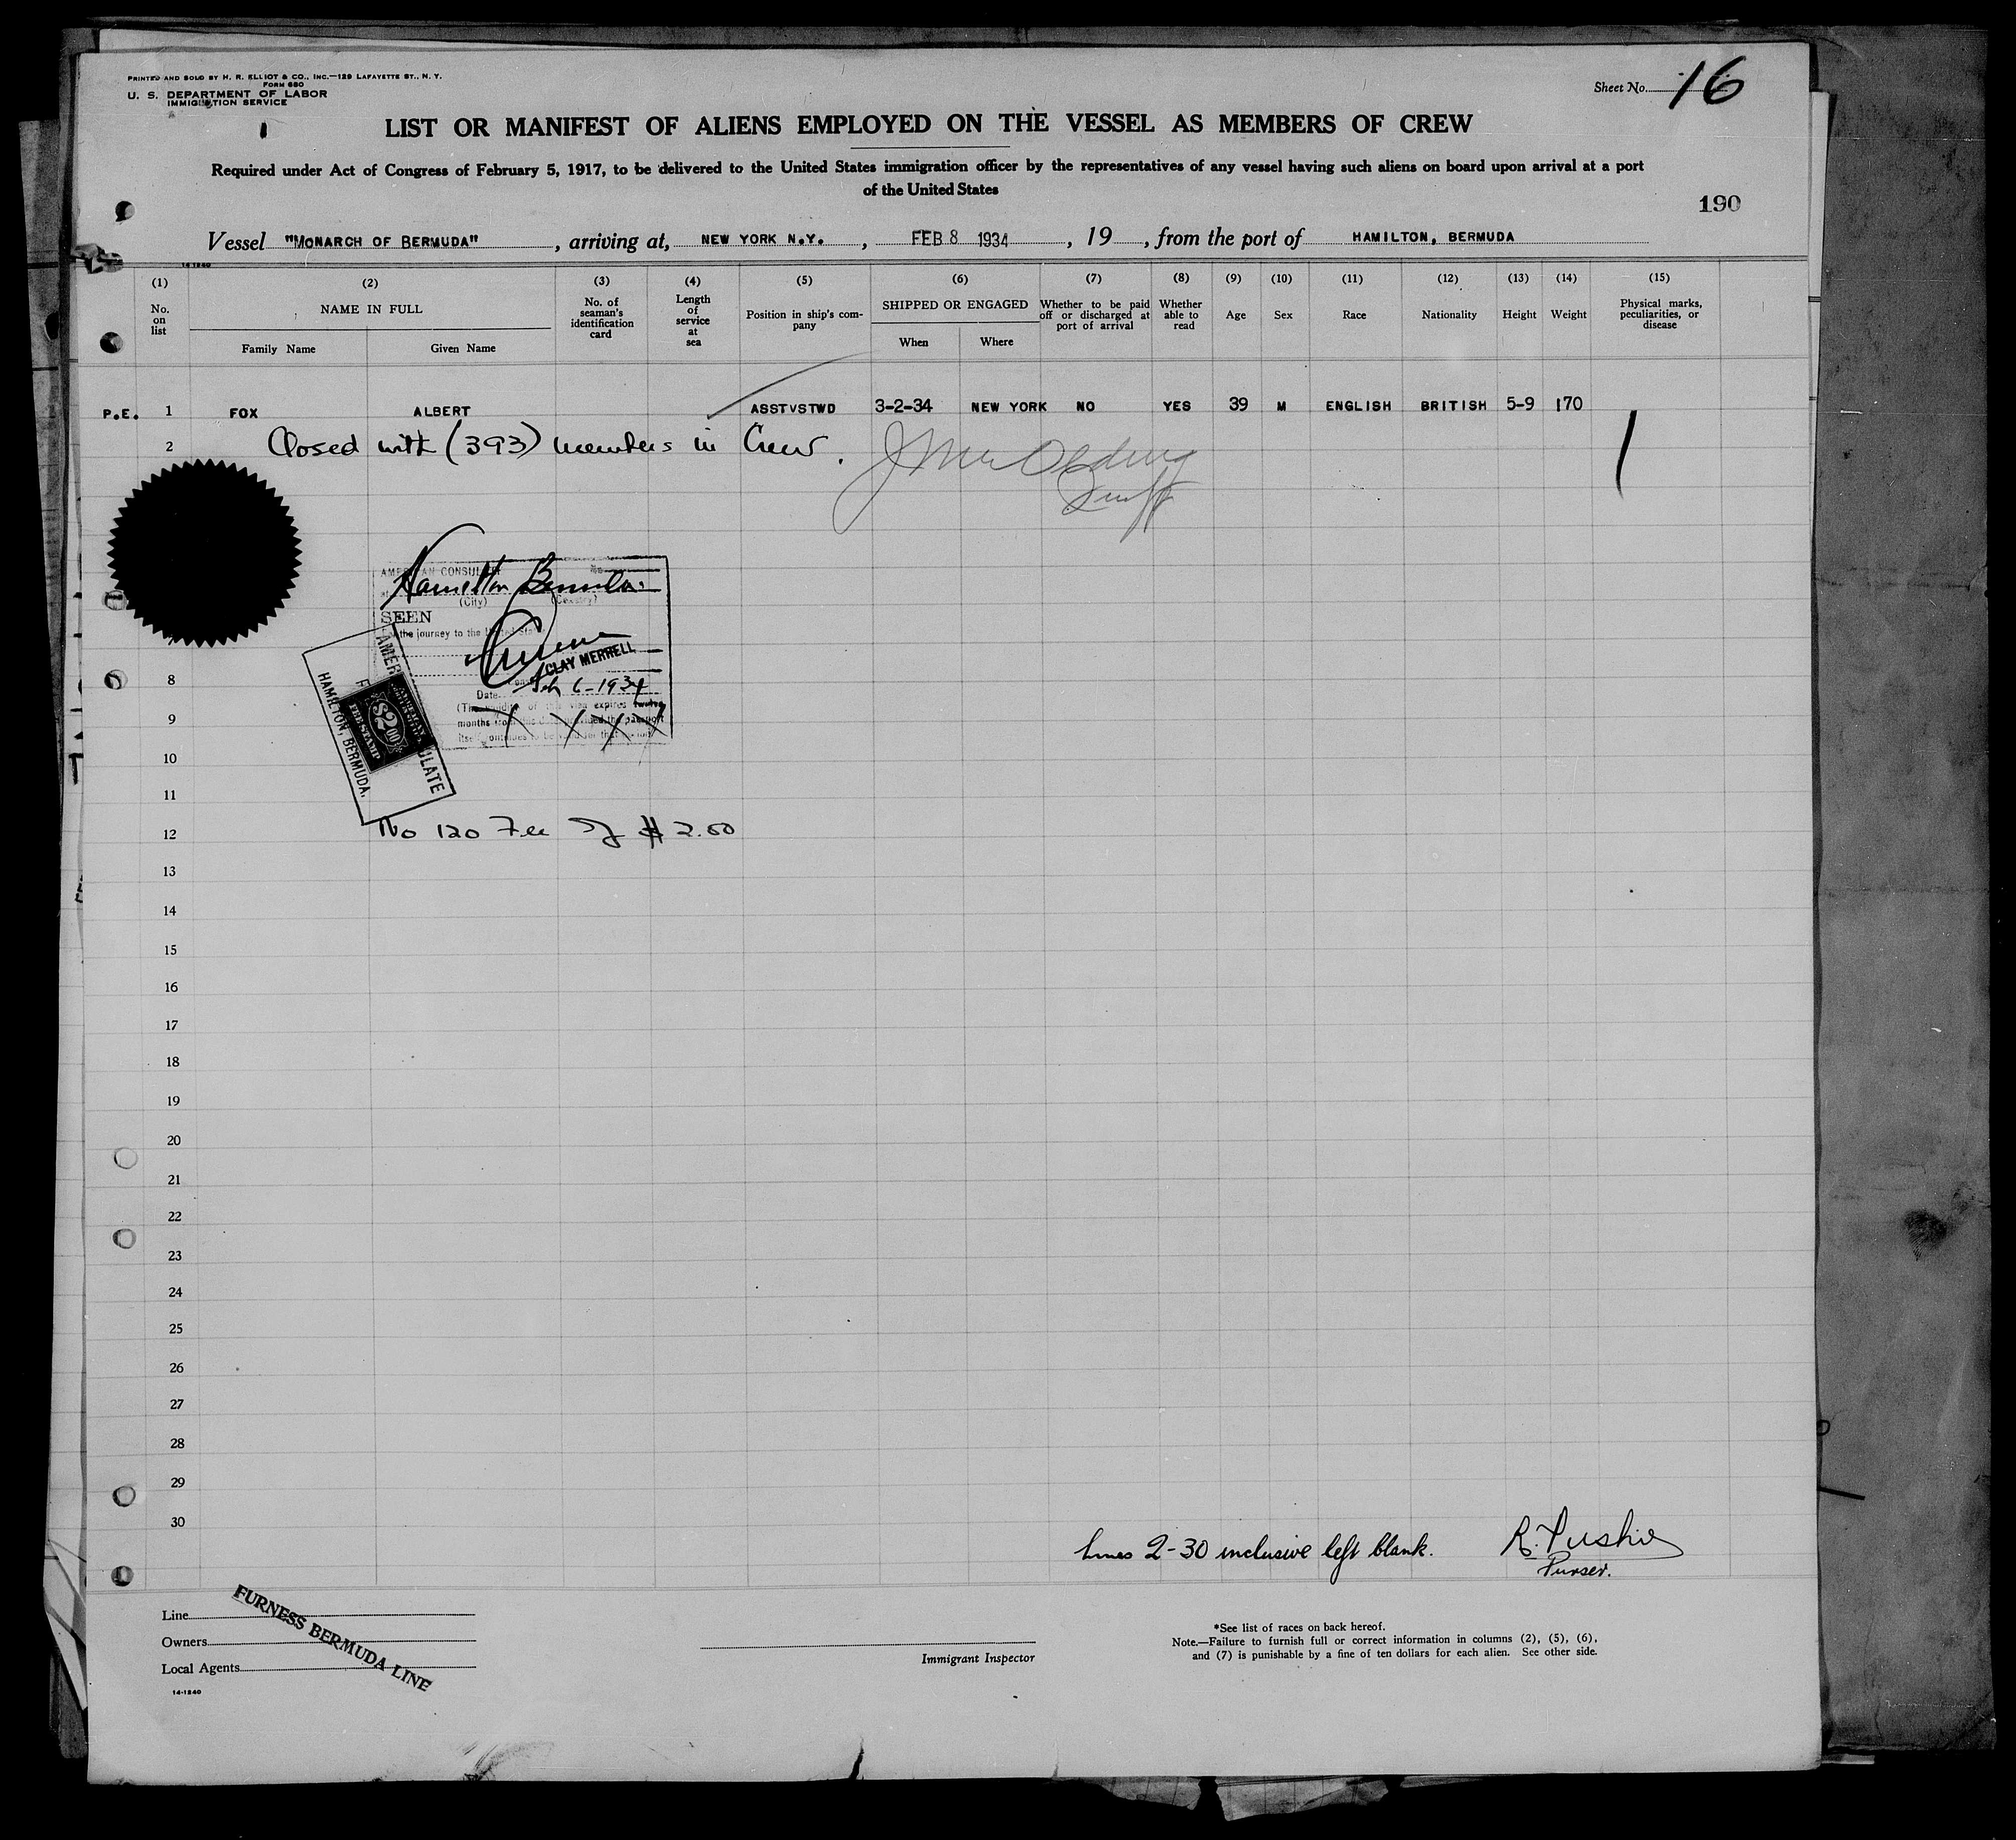 PRINTED AND SOLD BY H. R. ELLIOT & CO., INC.—129 LAFAYETTE ST., N. Y.
FORM 680
U. S. DEPARTMENT OF LABOR
IMMIGRATION SERVICE
Sheet No. 16
LIST OR MANIFEST OF ALIENS EMPLOYED ON THE VESSEL AS MEMBERS OF CREW
Required under Act of Congress of February 5, 1917, to be delivered to the United States immigration officer by the representatives of any vessel having such aliens on board upon arrival at a port
of the United States
190
Vessel "MONARCH OF BERMUDA", arriving at, NEW YORK N.Y., FEB 8 1934, 19, from the port of HAMILTON, BERMUDA
14-1240
(1) (2) (3) (4) (5) (6) (7) (8) (9) (10) (11) (12) (13) (14) (15)
No. on list
NAME IN FULL
Family Name Given Name
No. of seaman's identification card
Length of service at sea
Position in ship's company
SHIPPED OR ENGAGED
When Where
Whether to be paid off or discharged at port of arrival
Whether able to read
Age
Sex
Race
Nationality
Height
Weight
Physical marks, peculiarities, or disease
P.E. 1 FOX ALBERT ASSTVSTWD 3-2-34 NEW YORK NO YES 39 M ENGLISH BRITISH 5-9 170
2 Closed with (393) members in Crew.
AMERICAN CONSULATE
Hamilton Bermuda
(City) (Country)
SEEN
the journey to the United States
CLAY MERRELL
Date Feb 6-1934
(The validity of this visa expires twelve
months from this date provided the passport
itself continues to be valid for that period
AMERICAN CONSULATE
HAMILTON, BERMUDA.
AMERICAN
$2.00
FEE STAMP
8
9
10
11
12 No 120 Fee of $2.00
13
14
15
16
17
18
19
20
21
22
23
24
25
26
27
28
29
30
lines 2-30 inclusive left blank.
Purser.
Line
Owners
Local Agents
FURNESS BERMUDA LINE
14-1240
Immigrant Inspector
*See list of races on back hereof.
Note.—Failure to furnish full or correct information in columns (2), (5), (6),
and (7) is punishable by a fine of ten dollars for each alien. See other side.